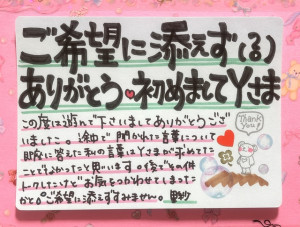 ご希望に添えず(る)
ありがとう♥初めましてYさま
この度は遊んで下さいましてありがとうござ
いました。途中で聞かれた言葉について
即座に答えた私の言葉はYさまが求めてた
ことでよかったと思います。後でその件
トークしたけどお気をつかわせてしまった
かと。ご希望に添えずすみません。
Thank
you!